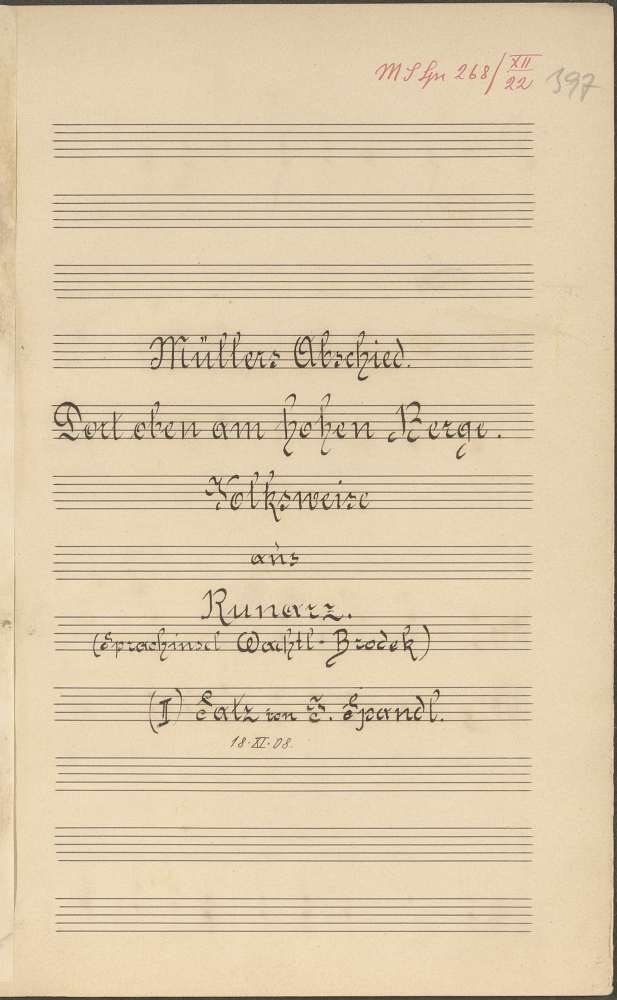 MS Spr 268/XII/22 397
Müllers Abschied.
Dort oben am hohen Berge.
Volksweise
aus
Runarz.
(Sprachinsel Wachtl-Brodek)
(I) Satz von F. Spandl.
18·XI·08.